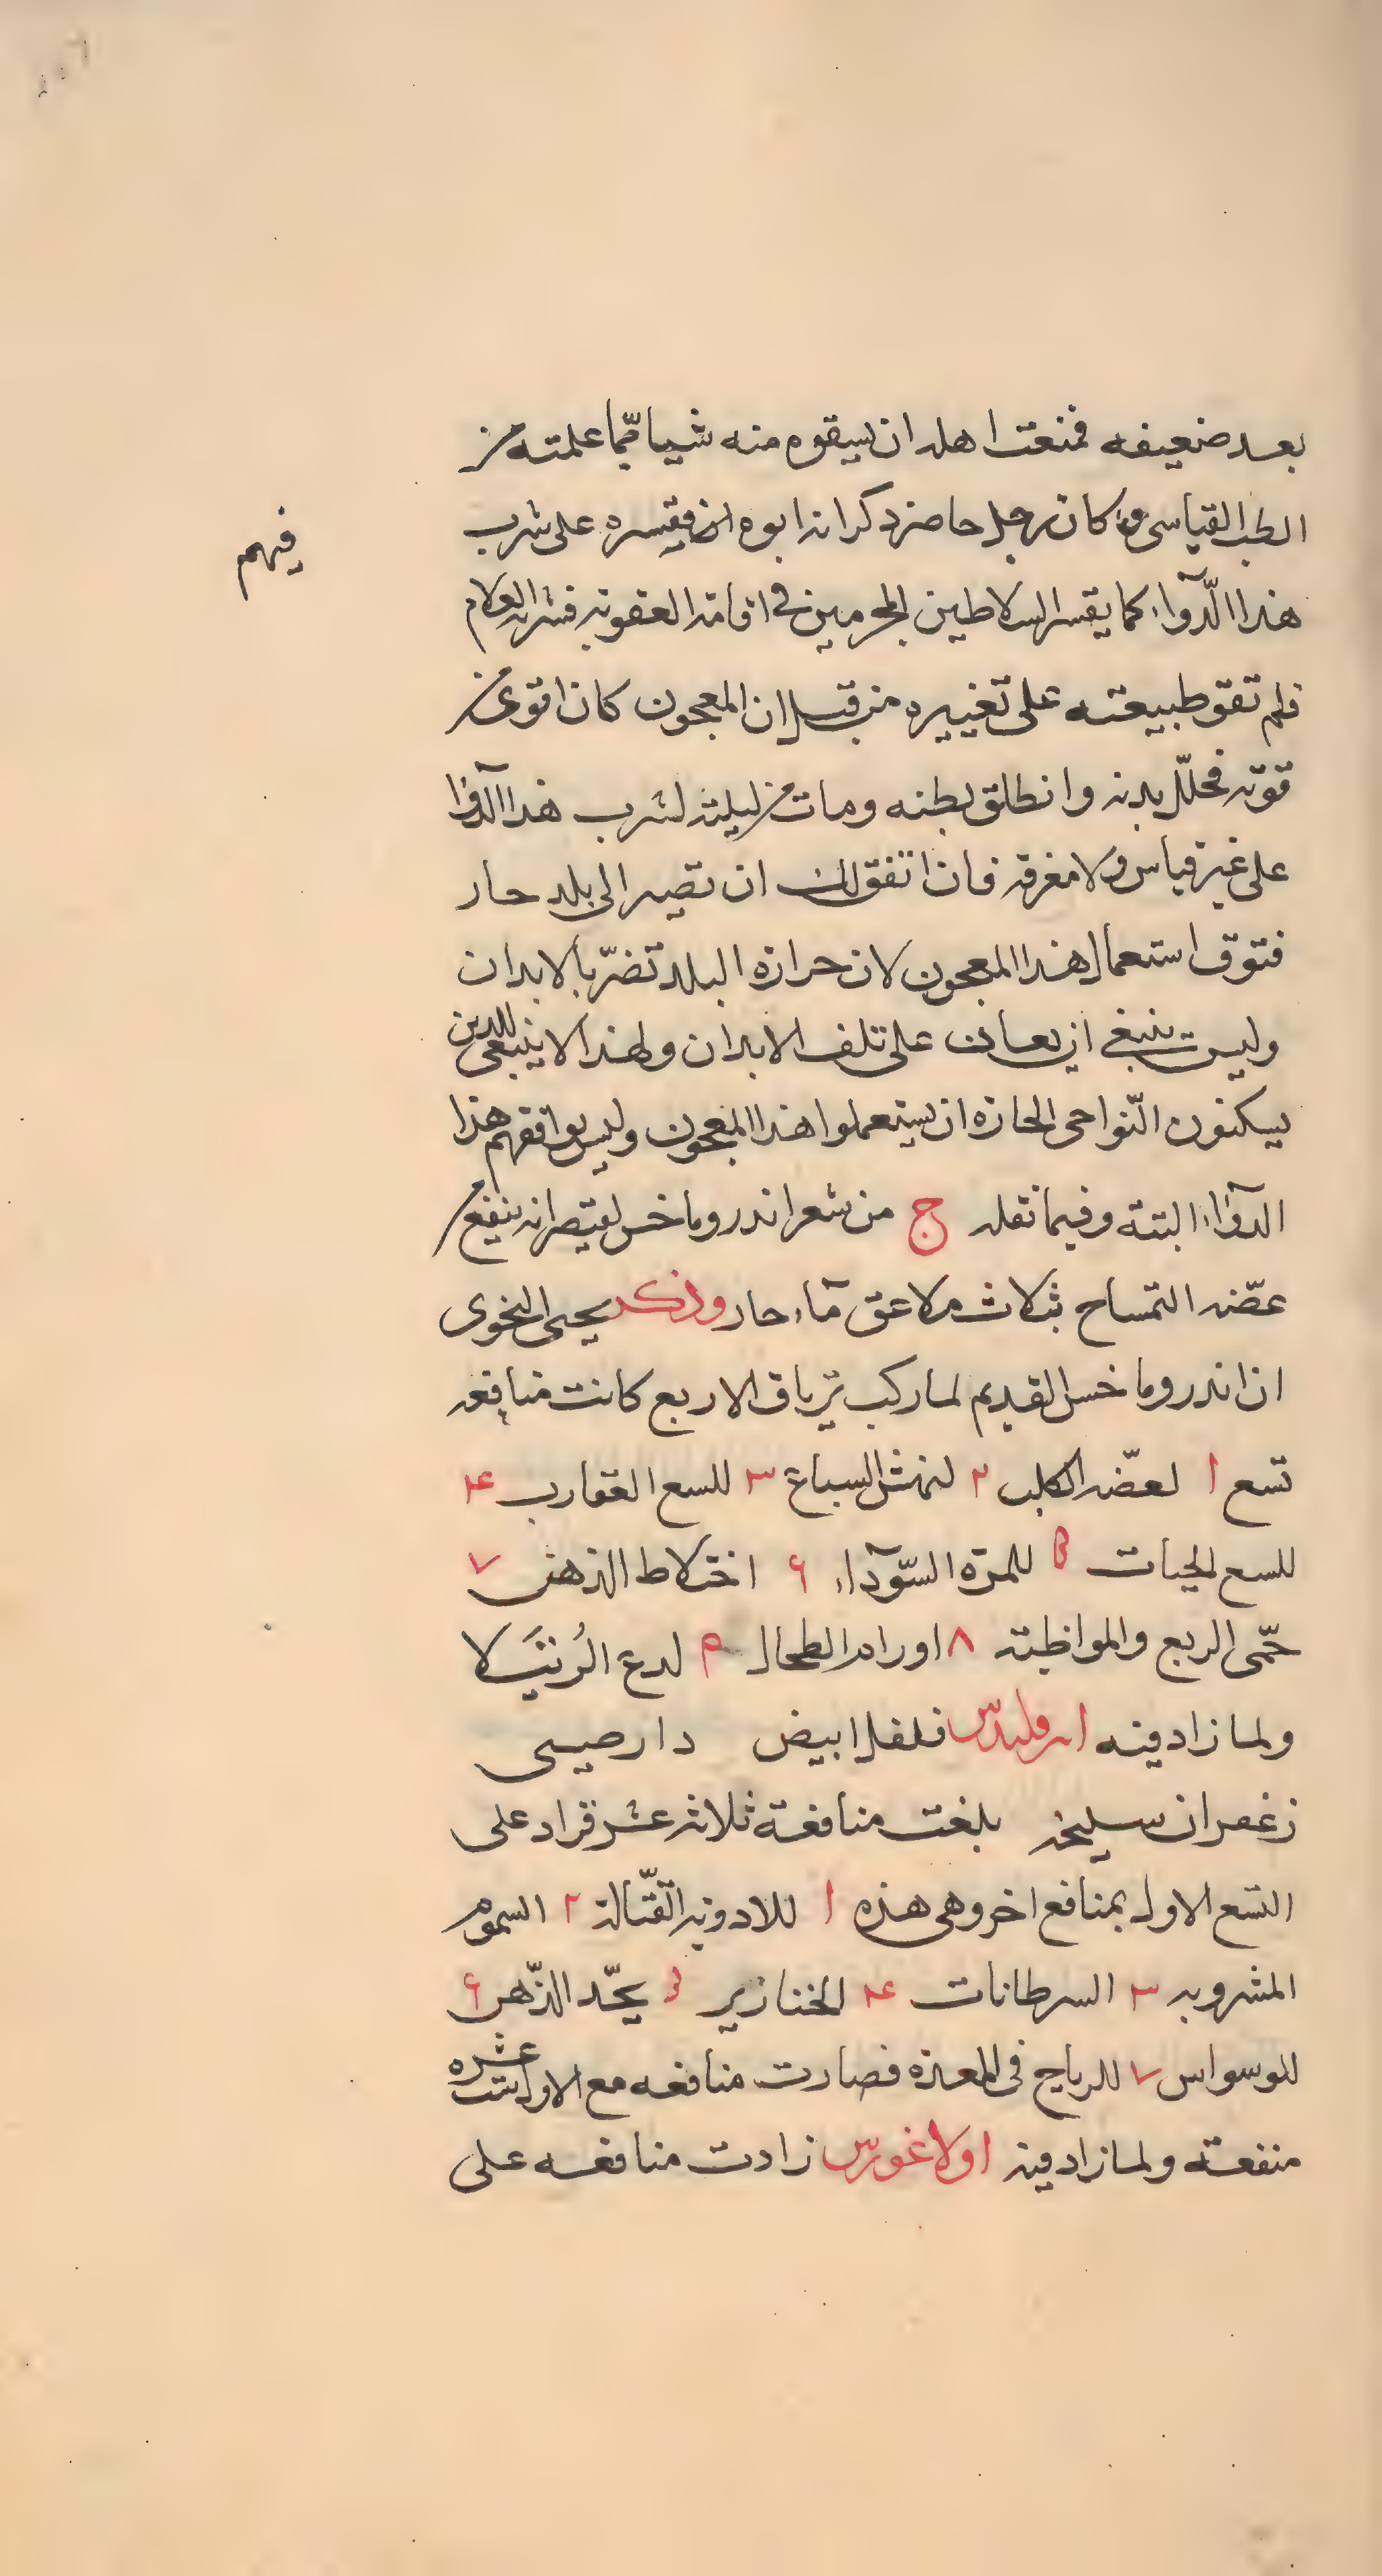 بعد ضعيفه فمنعت اهله ان يسقوه منه شيا ممّا علمته من
الطب القياسى وكان رجل حاضر ذكر انه ابوه فقسره على شرب
فيهم
هذا الدّوآء كما يقسر السلاطين المجرمين فى اقامة العقوبه فشربه الغلام
فلم تقو طبيعته على تغييره من قبل ان المعجون كان اقوى من
قوته فحلّل بدنه وانطلق بطنه ومات من ليلته لشرب هذا الدوآ
على غير قياس ولا معرفه فان اتفق لك ان تصير الى بلد حار
فتوق استعمال هذا المعجون لان حرارة البلد تضرّ بالابدان
وليس ينبغى ان يعان على تلف الابدان ولهذا لا ينبغى للذين
يسكنون النّواحى الحارة ان يستعملوا هذا المعجون وليس يوافقهم هذا
الدوآء البتة وفيما نقله ج من شعر اندروماخس لقيصر انه ينفع من
عضّه التمساح بثلاث ملاعق مآء حار وذكر يحيى النحوى
ان اندروماخس القديم لما ركب ترياق الاربع كانت منافعه
تسع ١ لعضّه الكلب ٢ لنهش السباع ٣ للسع العقارب ۴
للسع الحيات ۵ للمرّة السّودآء ۶ اختلاط الذهن ٧
حمّى الربع والمواظبة ٨ اورام الطحال ٩ لدغ الرُتَيلا
ولما زاد فيه اىرقلىدس فلفل ابيض دارصينى
زعفران سليخه بلغت منافعة ثلاثه عشر فزاد على
التسع الاول بمنافع اخر وهى هذه ١ للادويه القتّالة ٢ السموم
المشروبه ٣ السرطانات ۴ الخنازير ۵ يحّد الذّهن ۶
للوسواس ٧ للرياح فى المعدة فصارت منافعه مع الاول ست عشره
منفعة ولما زاد فيه اولاغورس زادت منافعه على